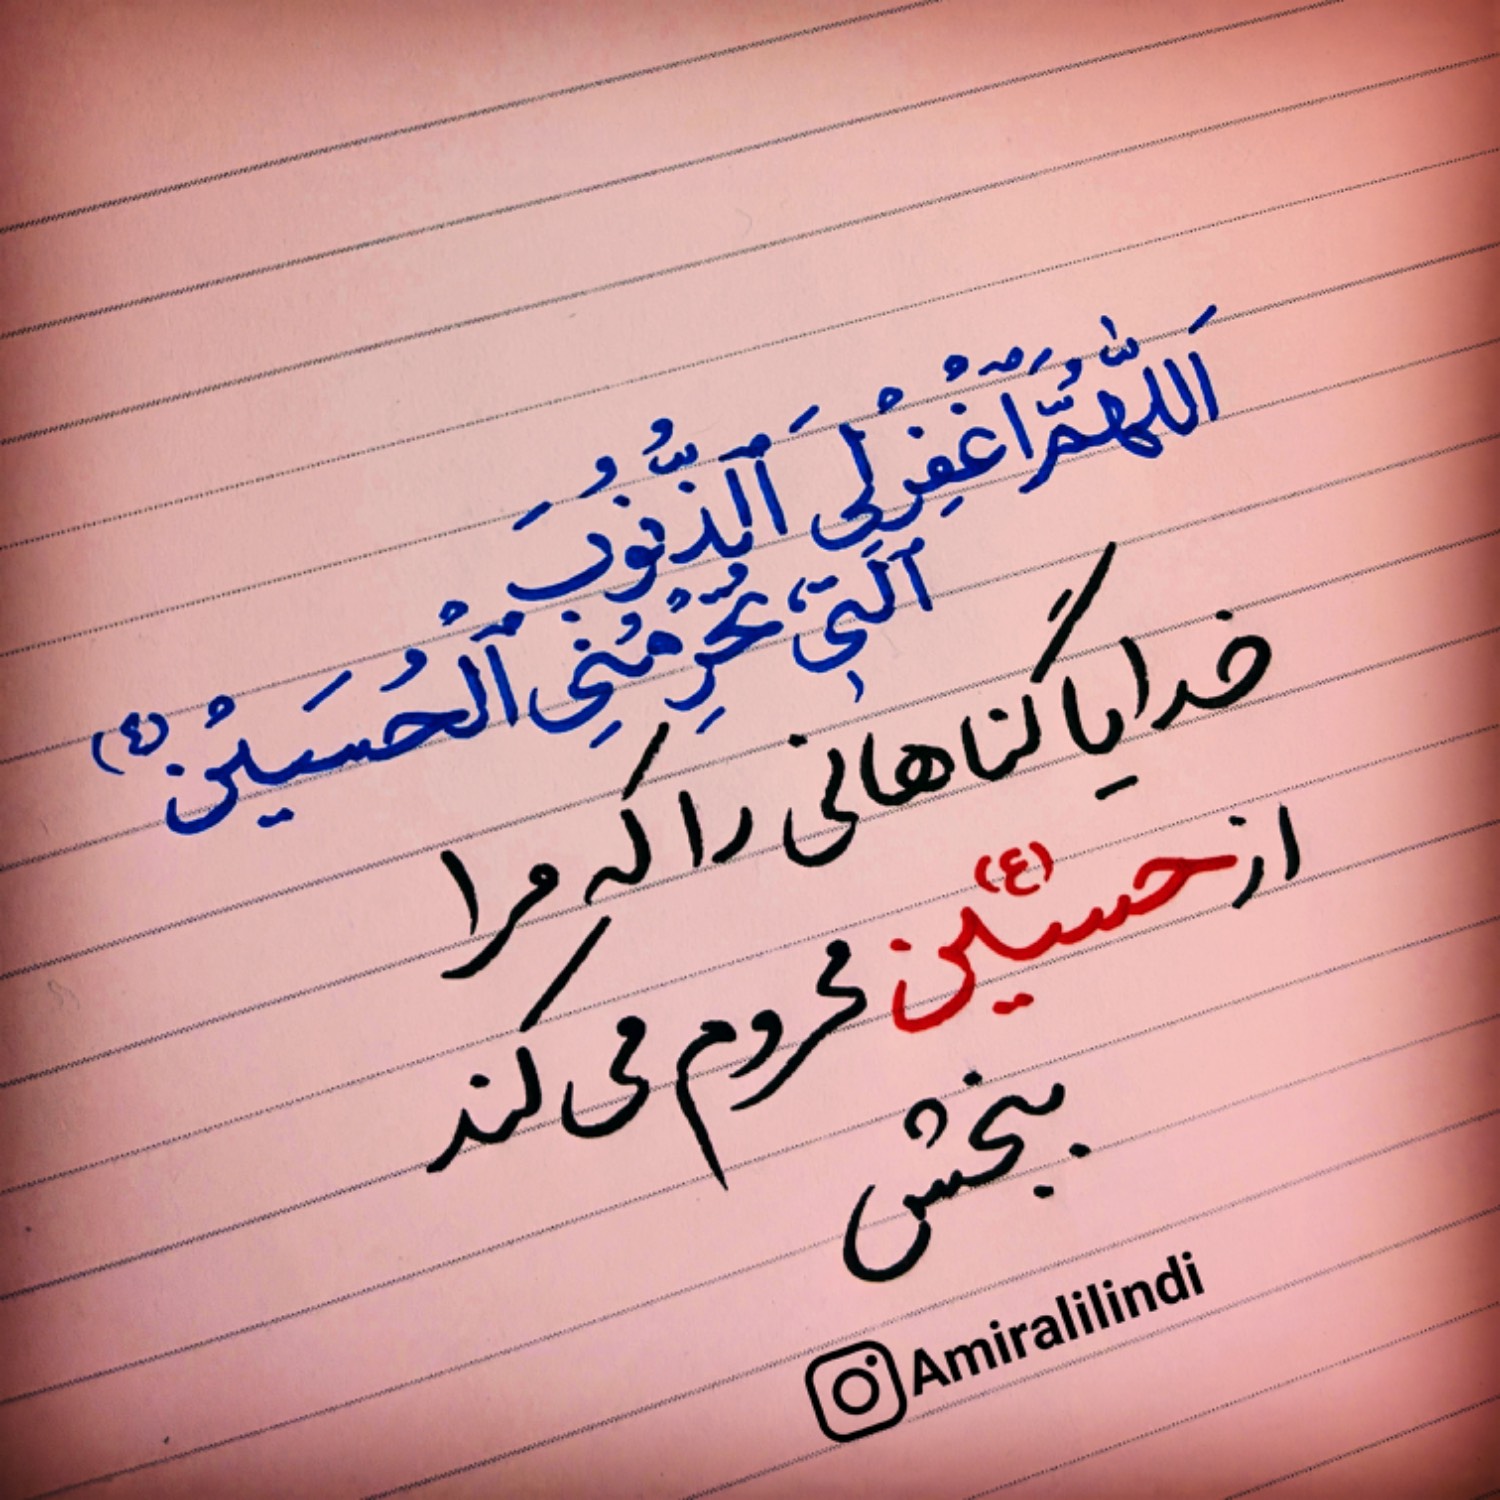 اَللّٰهُمَّ ٱغْفِرْ لِیَ ٱلذُّنُوبَ
ٱلَّتِي تُحَرِّمُنِی ٱلْحُسَیْن (ع)
خدایا گناهانی را که مرا
از حسین (ع) محروم می کند
ببخش
Amiralilindi